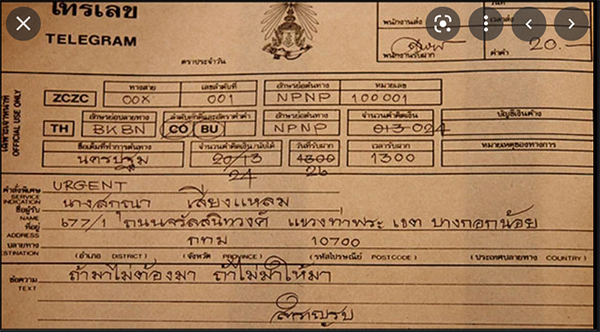 โทรเลข
TELEGRAM
ตราประจำวัน
พนักงานส่ง
เวลาส่ง
พนักงานรับฝาก
ค่าคำ 20.-
เฉพาะเจ้าหน้าที่
OFFICIAL USE ONLY
ทางสาย เลขลำดับที่ อักษรย่อต้นทาง หมายเลข
ZCZC OOX 001 NPNP 100001
อักษรย่อปลายทาง อักษรย่อต้นทาง จำนวนคำคิดเงิน บัญชีเงินค้าง
TH BKBN CO BU NPNP 013 024
ชื่อเต็มที่ทำการต้นทาง จำนวนคำคิดเงิน/นับได้ วันที่รับฝาก เวลารับฝาก หมายเหตุของทางการ
นครปฐม 20/13 1300 1300
24 26
คำสั่งพิเศษ URGENT
SERVICE
INDICATION
ชื่อผู้รับ
NAME
นางสกุณา เสียงแหลม
ที่อยู่
ADDRESS
677/1 ถนนจรัลสนิทวงศ์ แขวงท่าพระ เขต บางกอกน้อย
ปลายทาง
DESTINATION
กทม 10700
(อำเภอ DISTRICT) (จังหวัด PROVINCE) (รหัสไปรษณีย์ POSTCODE) (ประเทศปลายทาง COUNTRY)
ข้อความ
TEXT
ถ้ามาไม่ต้องมา ถ้าไม่มาให้มา